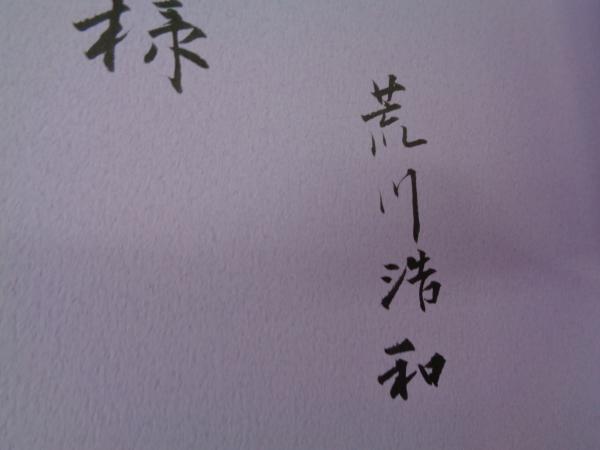 荒川浩和
様